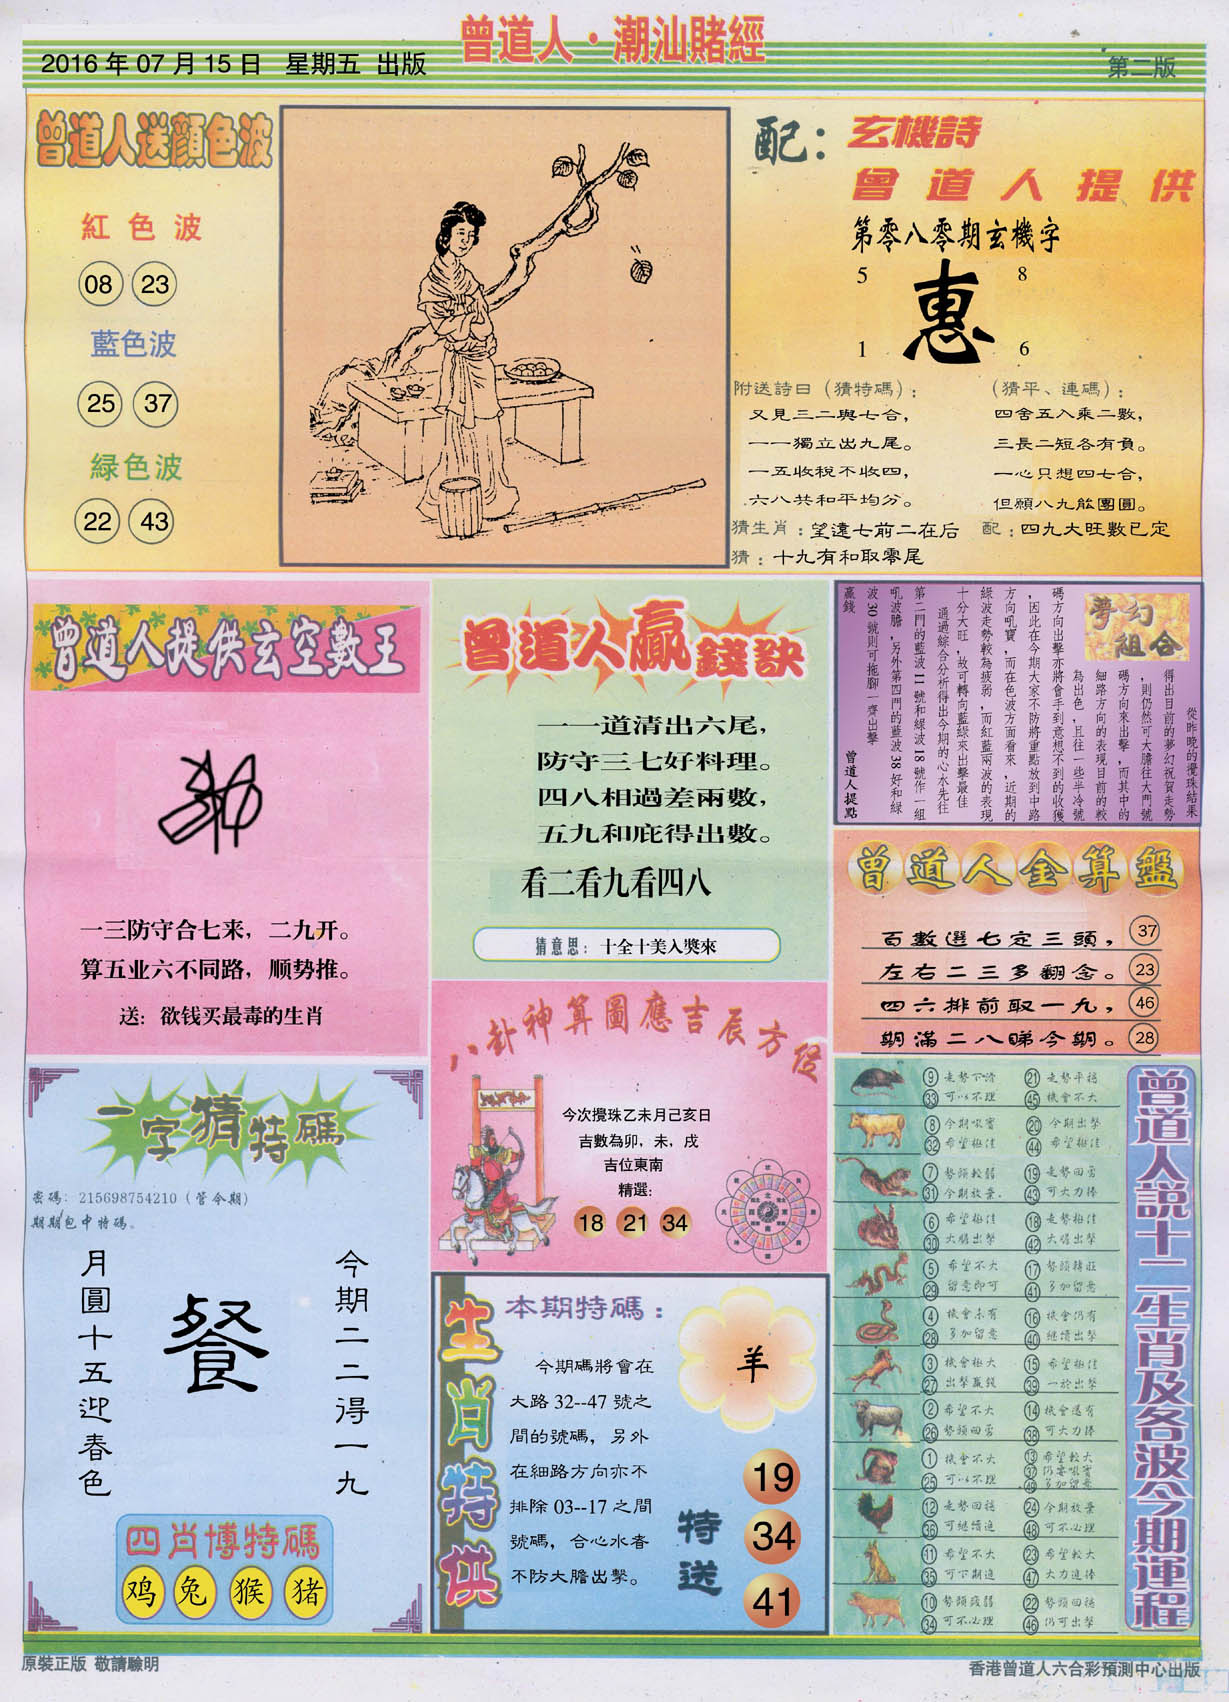 曾道人·潮汕賭經
2016年07月15日 星期五 出版
第二版
曾道人送顏色波
紅色波
08 23
藍色波
25 37
緑色波
22 43
配:玄機詩
曾道人提供
第零八零期玄機字
5 8
惠
1 6
附送詩曰(猜特碼):
又見三二與七合,
一一獨立出九尾。
一五收稅不收四,
六八共和平均分。
(猜平、連碼):
四舍五入乘二數,
三長二短各有負。
一心只想四七合,
但願八九能團圓。
猜生肖:望遠七前二在后
配:四九大旺數已定
猜:十九有和取零尾
曾道人提供玄空數王
一三防守合七来,二九开。
算五业六不同路,顺势推。
送:欲钱买最毒的生肖
曾道人贏錢訣
一一道清出六尾,
防守三七好料理。
四八相過差兩數,
五九和庇得出數。
看二看九看四八
猜意思:十全十美入獎來
夢幻組合
從昨晚的攪珠結果
得出目前的夢幻祝賀走勢
,則仍然可大膽往大門號
碼方向來出擊,而其中的
細路方向的表現目前的較
為出色,且往一些半冷號
碼方向出擊亦將會手到意想不到的收獲
,因此在今期大家不防將重點放到中路
方向吼寶,而在色波方面看來,近期的
綠波走勢較為疲弱,而紅藍兩波的表現
十分大旺,故可轉向藍綠來出擊最佳
通過綜合分析得出今期的心水先往
第二門的藍波11號和綠波18號作一組
吼波膽,另外第四門的藍波38好和綠
波30號則可拖腳一齊出擊
贏錢
曾道人提點
曾道人金算盤
百數選七定三頭, 37
左右二三多翻念。 23
四六排前取一九, 46
期滿二八睇今期。 28
八卦神算圖應吉辰方位
今次攪珠乙未月己亥日
吉數為卯,未,戌
吉位東南
精選:
18 21 34
一字猜特碼
密碼:215698754210(管令期)
期期包中特碼。
今期二二得一九
餐
月圓十五迎春色
四肖博特碼
鸡 兔 猴 猪
生肖特供
本期特碼:
羊
今期碼將會在
大路32--47號之
間的號碼,另外
在細路方向亦不
排除03--17之間
號碼,合心水者
不防大膽出擊。
特送
19
34
41
曾道人説十二生肖及各波今期運程
9 走勢下滑 21 走勢平穩
33 可以不理 45 機會不大
8 今期吼實 20 今期出擊
32 希望極佳 44 希望極佳
7 勢頭較弱 19 走勢回勇
31 今期放棄 43 可大力捧
6 希望極佳 18 走勢極佳
30 大膽出擊 42 大膽出擊
5 希望不大 17 勢頭轉旺
29 留意即可 41 多加留意
4 機會未有 16 機會仍有
28 多加留意 40 繼續出擊
3 機會極大 15 希望極佳
27 出擊贏錢 39 一於出擊
2 希望不大 14 機會還有
26 勢頭回勇 38 可大力捧
1 機會不大 13 希望較大
25 可以不理 37 仍要吼實
49 多加留意
12 走勢回穩 24 今期放棄
36 可繼續追 48 可不必理
11 希望不大 23 希望較大
35 可下期追 47 大力追捧
10 勢頭疲弱 22 勢頭回穩
34 可不必理 46 仍可出擊
原裝正版 敬請驗明
香港曾道人六合彩預測中心出版